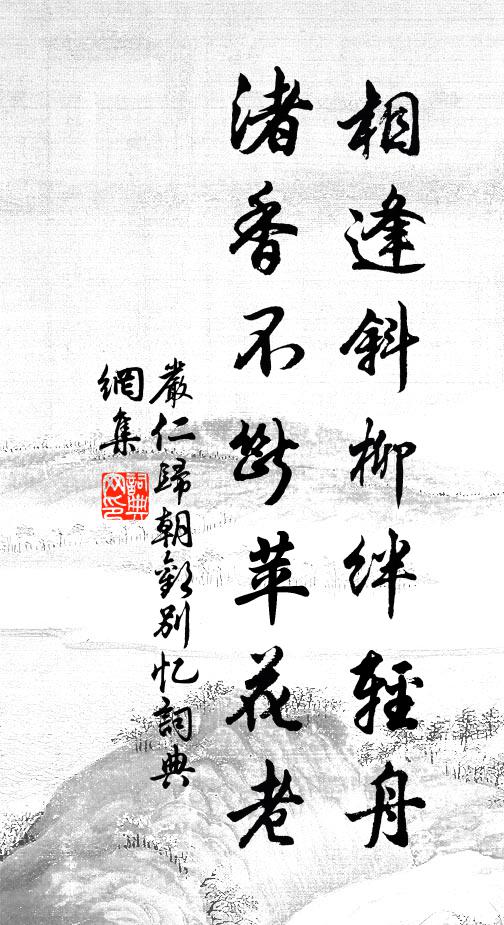 相逢斜柳絆輕舟
渚香不斷苹花老
嚴仁歸朝歡別忆詞典
網集
詞典
网印